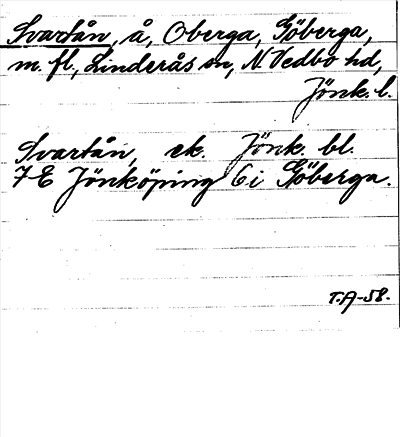 Svartån, å, Oberga, Göberga,
m. fl., Linderås sn, N Vedbo hd,
Jönk. l.
Svartån, ek. Jönk. bl.
7 E Jönköping 6i Göberga.
T.A-58.